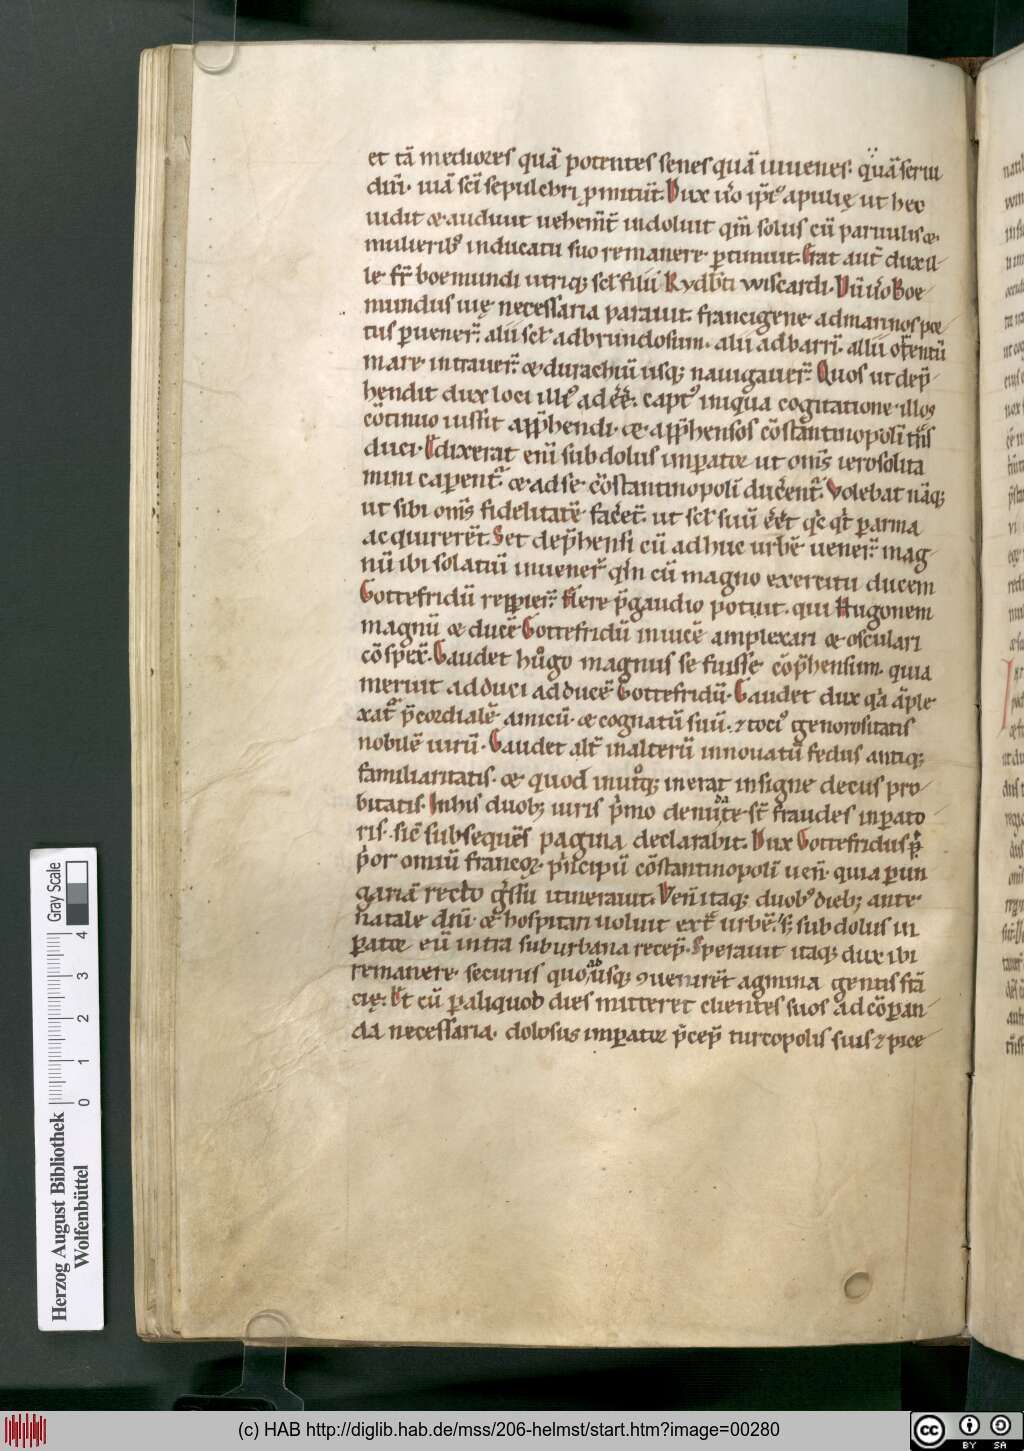 et tā mediores quā potentes senes quā iuuenes. quā serui
dn̄i. uiā sc̄i sepulchri p̄mittūt. Dux ū̄o ip̄i᷒ apulię ut hec
uidit & audiuit uehem̄t̄ indoluit qm̄ solus cū paruulis &
mulierib᷒ in ducatu suo remanere ꝑtimuit. Erat aut̄ dux il-
le fr̄ boemundi utriq; scł filii Rydb̄ti wiscardi. Dū ū̄o Boe-
mundus uię necessaria parauit. francigene ad marinos poe-
tus ꝑuener̄. alii scł ad brundosium. alii ad barrī. allii otrentū
mare intrauer̄. & durachiū usq; nauigauer̄. Quos ut dep̄-
hendit dux loci illi᷒ adēē. capt᷒ iniqua cogitatione illos
cōtinuo iussit app̄hendi. & app̄hensos cōstantinopolī
duci. Edixerat enī subdolus imꝑator ut om̄s ierosolita
mini caꝑent᷑. & ad se cōstantinopolī ducent᷑. Volebat nāq;
ut sibi om̄s fidelitatē facēt. ut scł suū ēēt qc̄ qd̄ ꝑ arma
acquirerēt. Set dep̄hensi cū adhuc urbē uener̄. mag-
nū ibi solatiū inuener̄ qm̄ cū magno exercitu ducem
Gottefridū reppier̄. Flere p̄ gaudio potuit. qui Hugonem
magnū & ducē Gottefridū inuicē amplexari & osculari
cōspex̄. Gaudet hugo magnus se fuisse cōp̄hensum. quia
meruit adduci ad ducē Gottefridū. Gaudet dux qa āple-
xat᷑ p̄cordialē amicū. & cognatū suū. ⁊ toci᷒ genorositatis
nobilē uirū. Gaudet alt̄ in alterū innouatū fedus antiq;
familiaritatis. & quod inut᷑q; inerat insigne decus pro-
bitatis. In his duob; uiris p̄mo denudate st̄ fraudes inꝑato
ris. sic̄ subsequēs pagina declarabit. Dux Gottefridus p̄-
or omiū francoꝝ p̄ncipū cōstantinopolī uen̄. quia ꝑ un
gariā recto gssu itinerauit. Ven̄ itaq; duob᷒ dieb; ante
natale dn̄i. & hospitari uoluit ext̄ urbē. s; subdolus in
ꝑator eū intra suburbana recep̄. Sperauit itaq; dux ibi
remanere securus quo adusq; ꝯuenirēt agmina gentis frā
cię. Et cū ꝑ aliquod dies mitteret clientes suos ad cōꝑan-
da necessaria. dolosus imꝑator p̄cep̄ turcopolis suis ⁊ pice
Gray Scale
0 1 2 3 4
Herzog August Bibliothek
Wolfenbüttel
(c) HAB http://diglib.hab.de/mss/206-helmst/start.htm?image=00280
cc BY SA